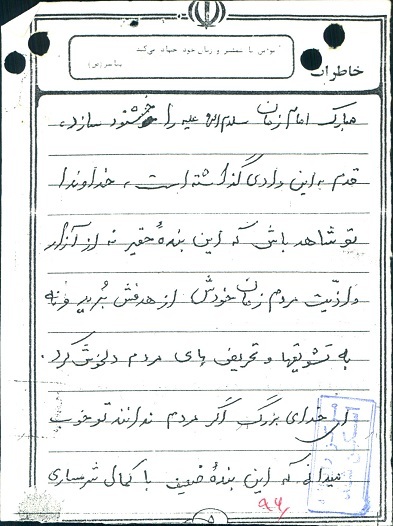 مؤمن با شمشیر و زبان خود جهاد می‌کند
پیامبر (ص)
خاطرات
مبارک امام زمان سلام الله علیه را خوشنود سازد،
قدم به این وادی گذاشته است، خداوندا
تو شاهد باش که این بندهٔ حقیر نه از آزار
و اذیت مردم زمان خودش از هدفش بُرید و نه
به تشویقها و تحریف های مردم دلخوش کرد.
ای خدای بزرگ اگر مردم ندانند تو خوب
میدانی که این بندهٔ ضعیف با کمال شرمساری
۹۶/
۵